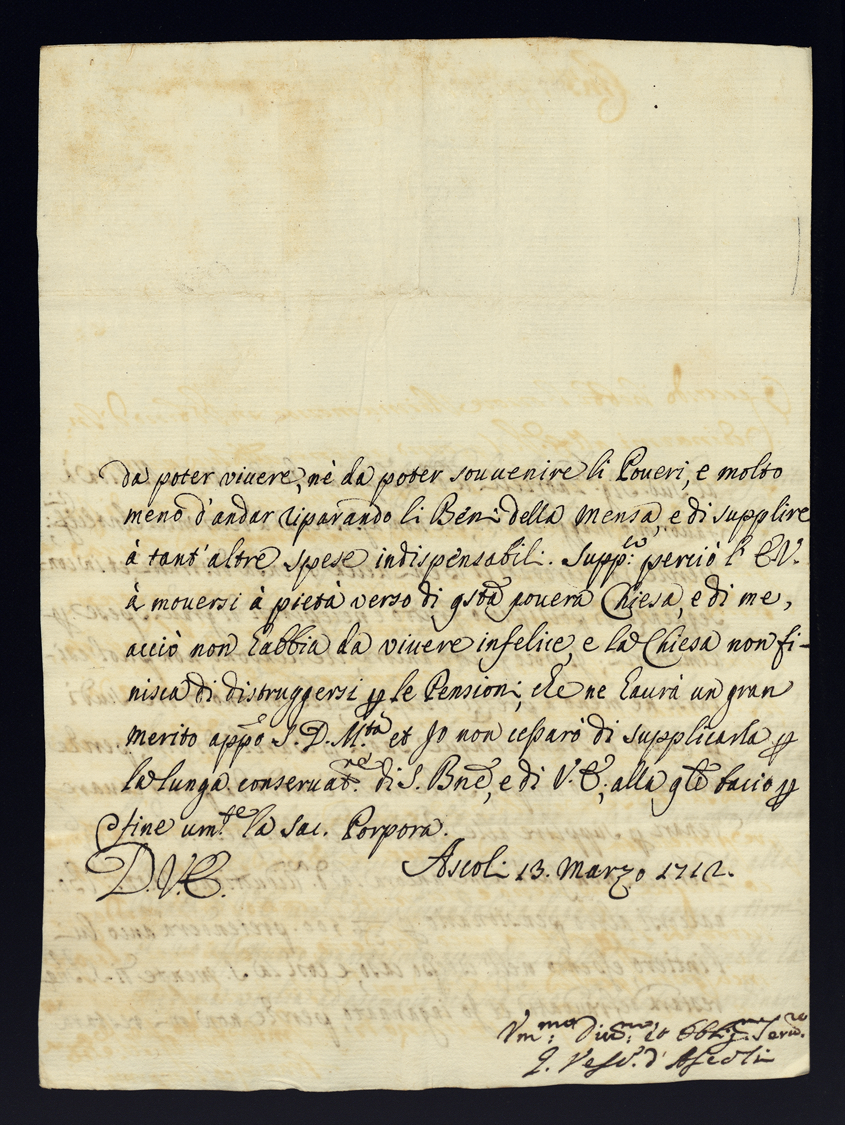 da poter viuere, nè da poter souuenire li Poueri, e molto
meno d'andar riparando li Beni della Mensa, e di supplire
à tant'altre spese indispensabili. Supp.co perciò l'E.V.
à mouersi à pietà verso di q̃sta pouera Chiesa, e di me,
acciò non habbia da viuere infelice, e la Chiesa non fi-
nisca di distruggersi ꝑ le Pensioni, che ne haurà un gran
merito appõ S.D.M.tà et Io non cessarò di supplicarla ꝑ
la lunga conseruat.ne di S. Bnẽ, e di V.E., alla q̃le bacio ꝑ
fine um.te la Sac. Porpora.
D.V.E. Ascoli 13. Marzo 1712.
Vm.mo Diu.mo ed Obblig.mo Seru.re
Vesc.o d'Ascoli